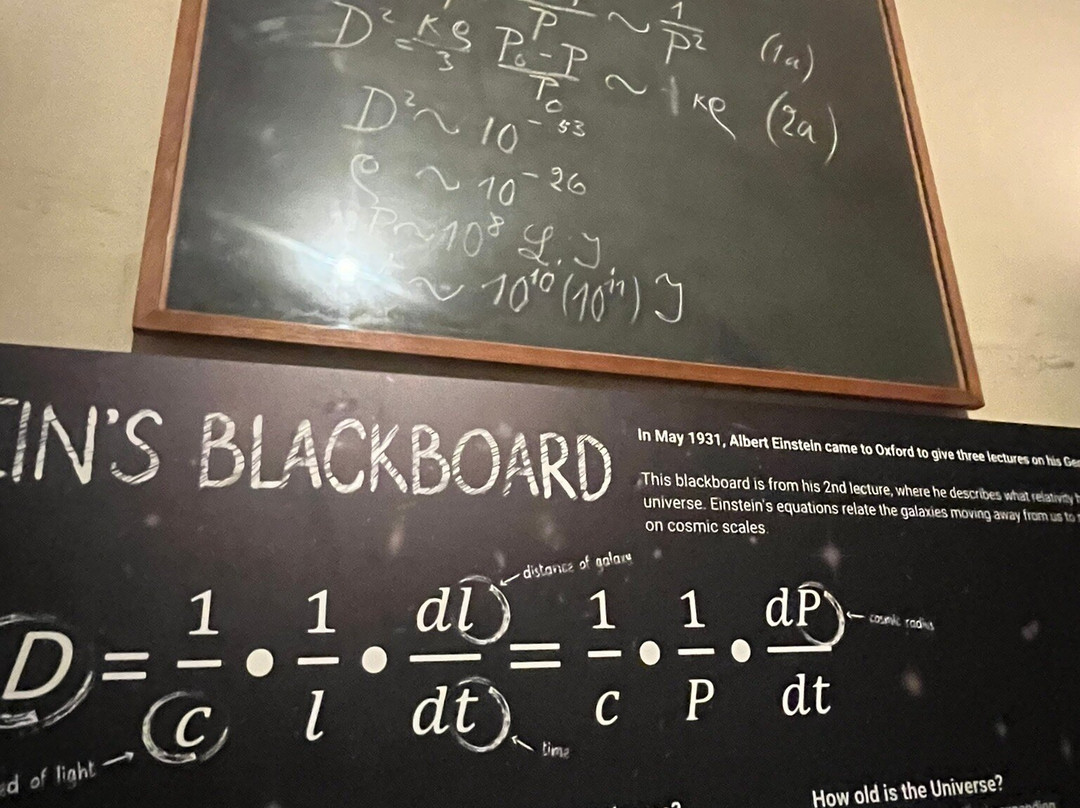 P ~ 1/P² (1a)
D² = κρ/3 P₀-P/P₀ ~ 1 κρ (2a)
D² ~ 10⁻⁵³
ρ ~ 10⁻²⁶
P ~ 10⁸ L.J
~ 10¹⁰ (10¹¹) J
IN'S BLACKBOARD
In May 1931, Albert Einstein came to Oxford to give three lectures on his
This blackboard is from his 2nd lecture, where he describes what relativity
universe. Einstein's equations relate the galaxies moving away from us to
on cosmic scales.
distance of galaxy
D = 1/c • 1/l • dl/dt = 1/c • 1/P • dP/dt
cosmic radius
time
d of light
How old is the Universe?